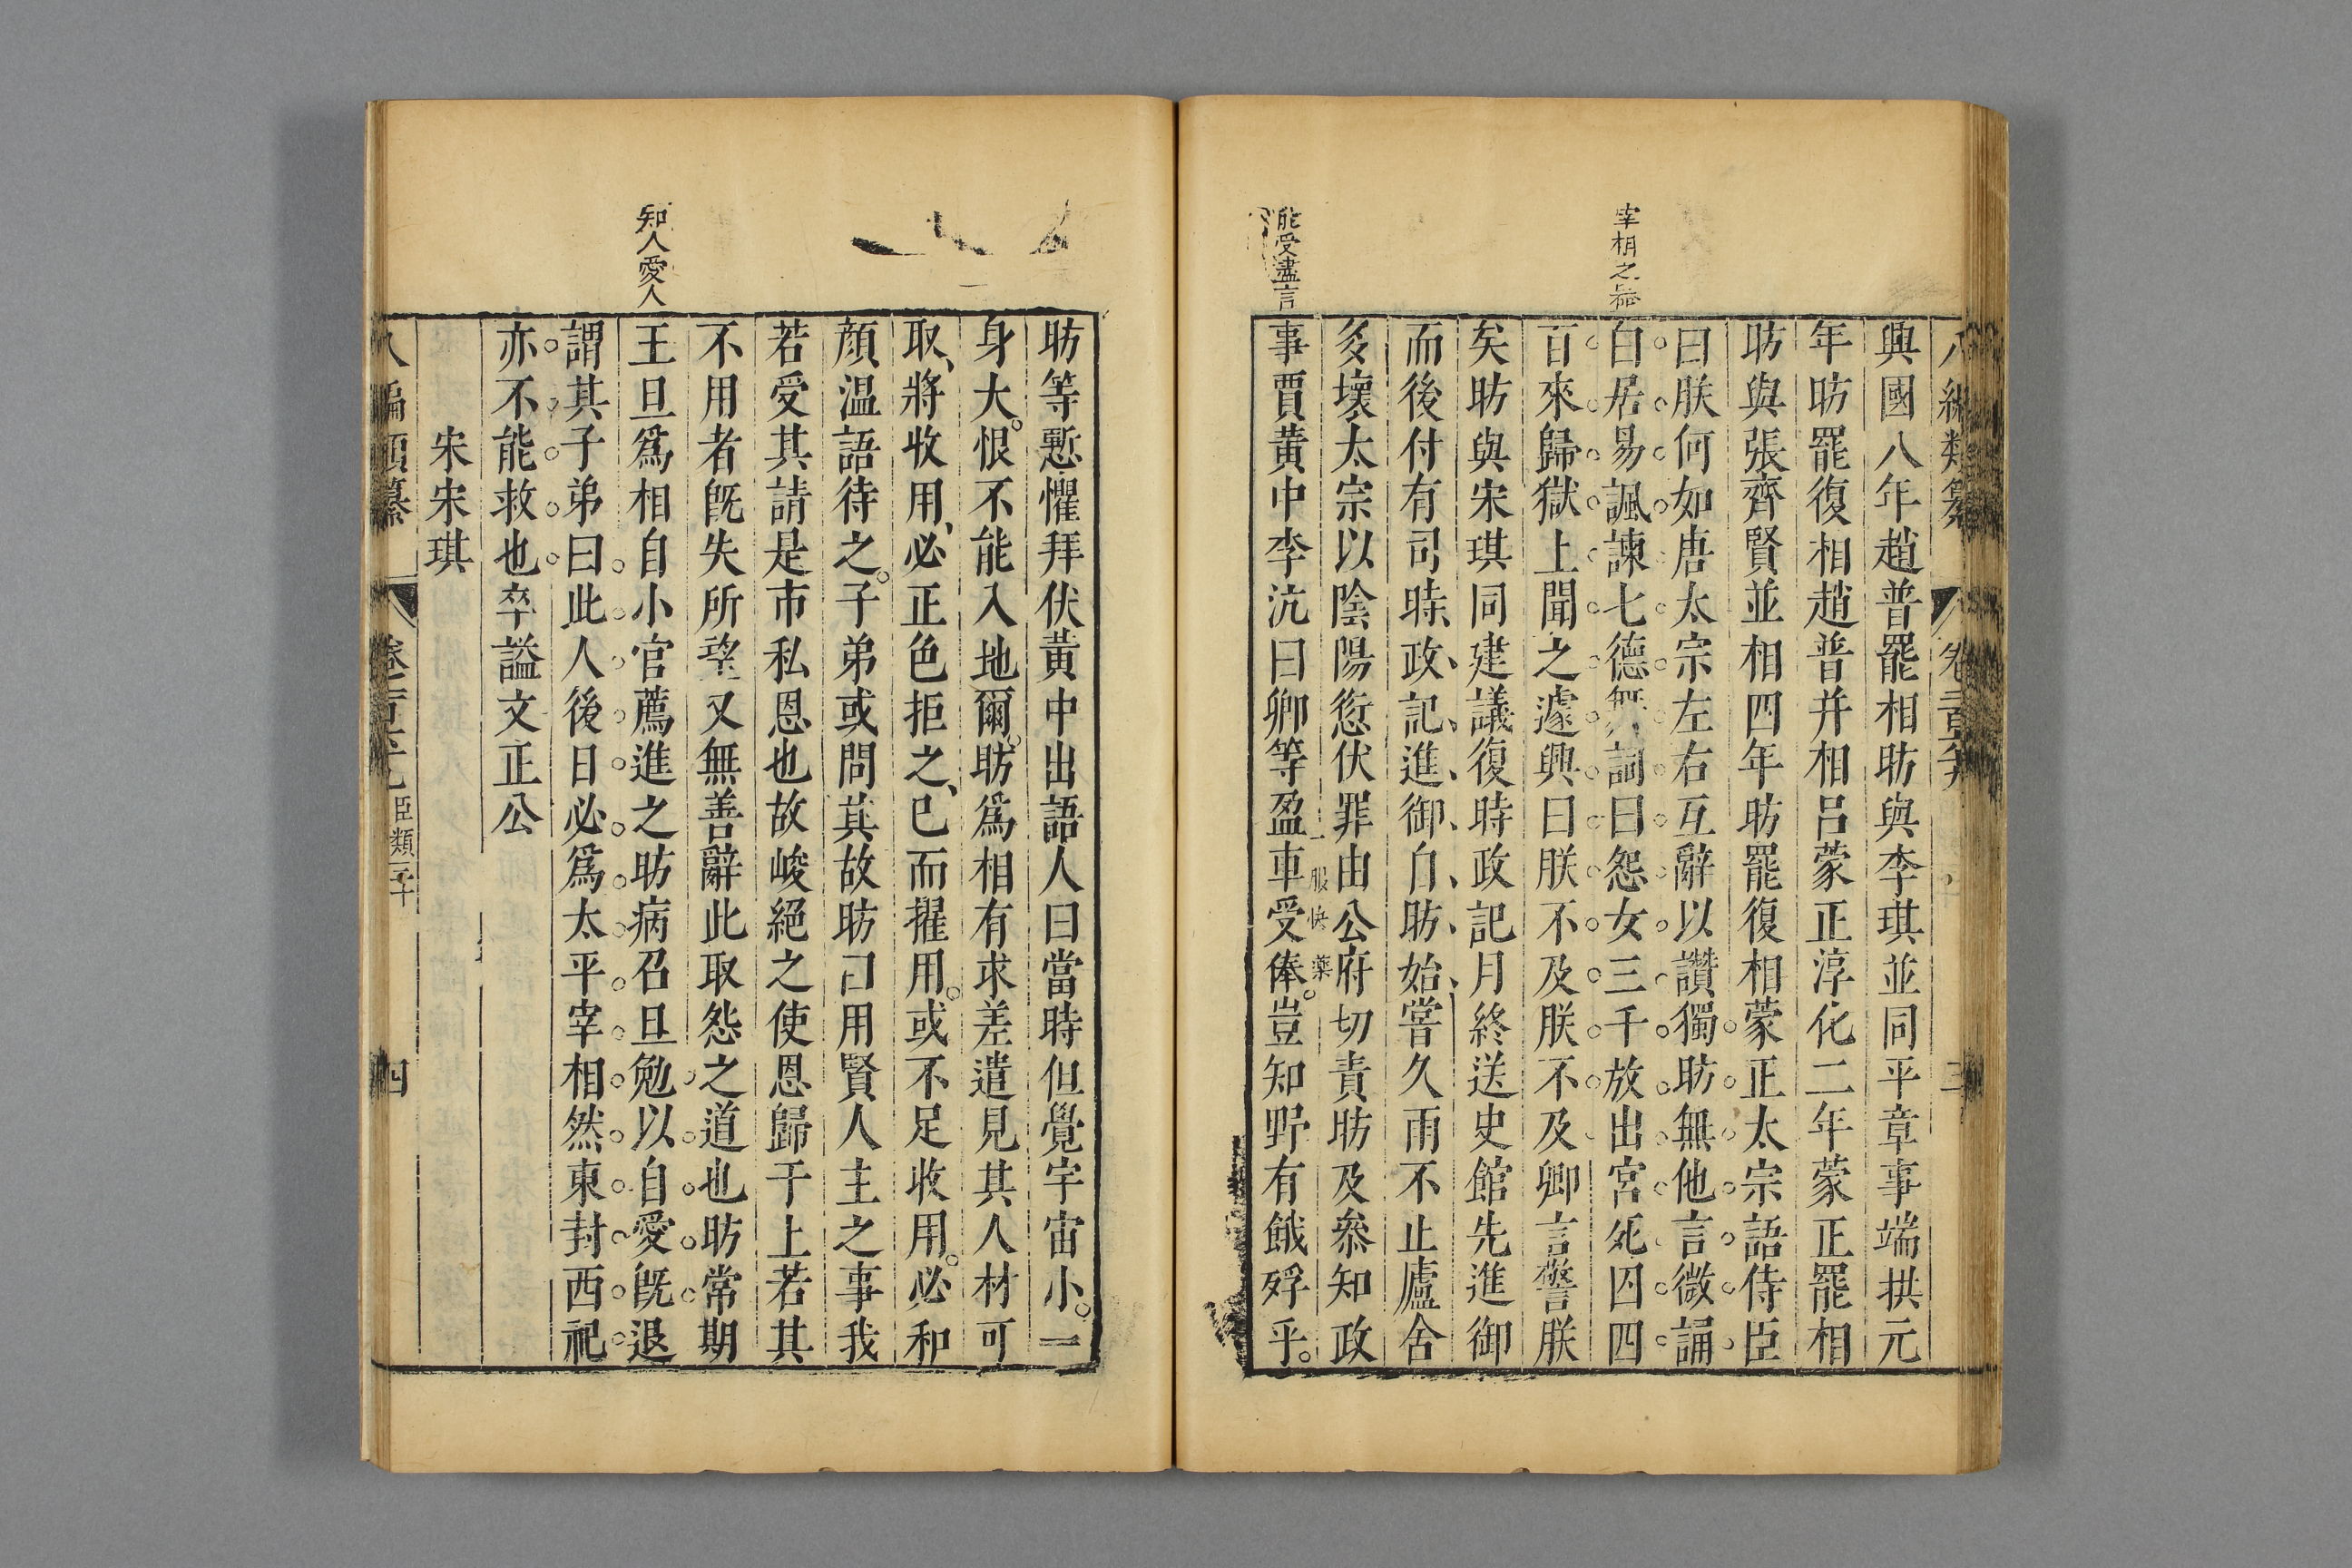 宰相之
能受盡言
八編類纂
卷
三
興國八年趙普罷相昉與李琪並同平章事端拱元
年昉罷復相趙普并相呂蒙正淳化二年蒙正罷相
昉與張齊賢並相四年昉罷復相蒙正太宗語侍臣
曰朕何如唐太宗左右互辭以讚獨昉無他言微誦
白居易諷諫七德舞詞曰怨女三千放出宮死囚四
百來歸獄上聞之遽興曰朕不及朕不及卿言警朕
矣昉與宋琪同建議復時政記月終送史館先進御
而後付有司時政記進御自昉始嘗久雨不止廬舍
多壞太宗以陰陽愆伏罪由公府切責昉及叅知政
一服快藥
事賈黃中李沆曰卿等盈車受俸豈知野有餓殍乎
知人愛人
昉等慙懼拜伏黃中出語人曰當時但覺宇宙小一
身大恨不能入地爾昉爲相有求差遣見其人材可
取將收用必正色拒之已而擢用或不足收用必和
顏温語待之子弟或問其故昉曰用賢人主之事我
若受其請是市私恩也故峻絕之使恩歸于上若其
不用者旣失所望又無善辭此取怨之道也昉常期
王旦爲相自小官薦進之昉病召旦勉以自愛旣退
謂其子弟曰此人後日必爲太平宰相然東封西祀
亦不能救也卒謚文正公
宋宋琪
八編類纂
臣類
四